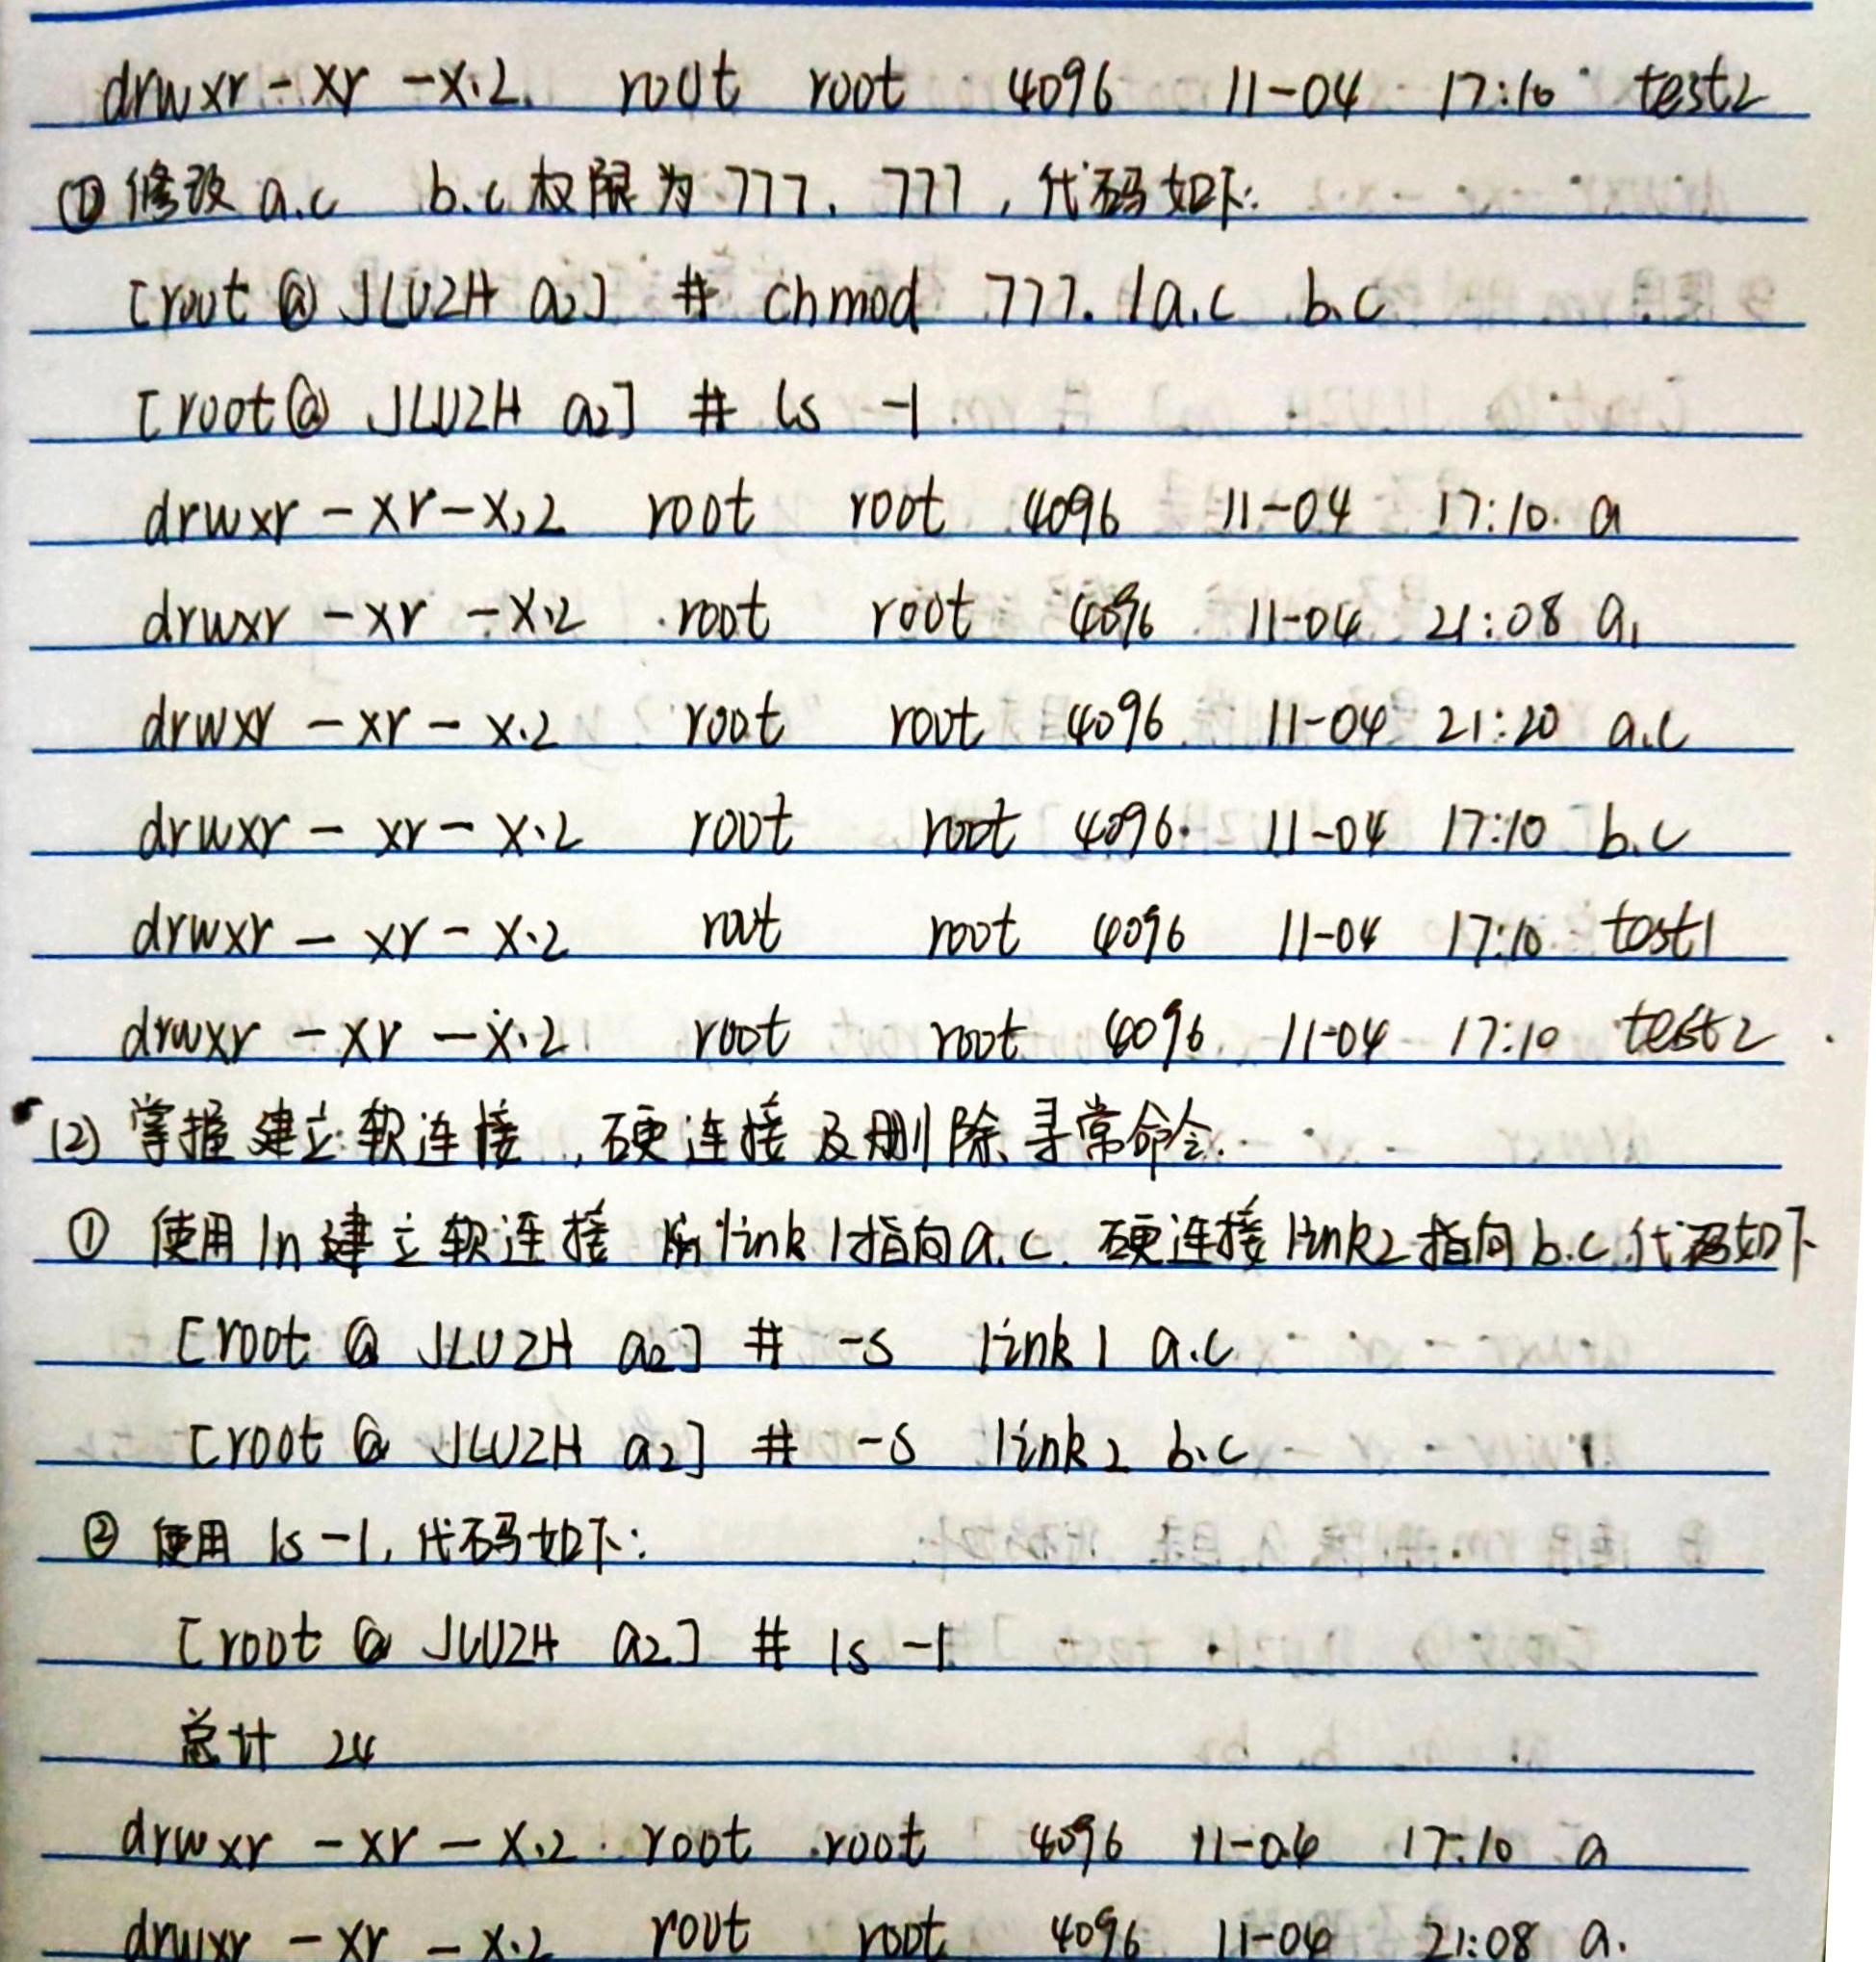 drwxr-xr-x.2. root root 4096 11-04 17:10 test2
① 修改 a.c b.c 权限为 777, 777, 代码如下:
[root @ JLUZH a2] # chmod 777. /a.c b.c
[root@ JLUZH a2] # ls -l
drwxr-xr-x.2 root root 4096 11-04 17:10. a
drwxr-xr-x.2 root root 4096 11-04 21:08 a1
drwxr-xr-x.2 root root 4096 11-04 21:20 a.c
drwxr-xr-x.2 root root 4096 11-04 17:10 b.c
drwxr-xr-x.2 root root 4096 11-04 17:10 test1
drwxr-xr-x.2 root root 4096 11-04 17:10 test2
(2) 掌握建立软连接,硬连接及删除寻常命令.
① 使用ln建立软连接 link1指向a.c. 硬连接link2指向b.c 代码如下
[root @ JLUZH a2] # -s link1 a.c
[root @ JLUZH a2] # -s link2 b.c
② 使用 ls -l, 代码如下:
[root @ JLUZH a2] # ls -l
总计 24
drwxr-xr-x.2. root root 4096 11-04 17:10 a
drwxr-xr-x.2 root root 4096 11-04 21:08 a.